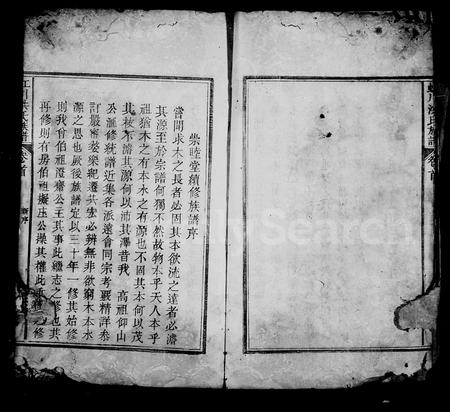 柴睦堂續修族譜序
嘗聞求木之長者必固其本欲流之遠者必濬
其源至於宗譜何獨不然故物本乎天人本乎
祖猶木之有本水之有源也不固其本何以茂
其枝不濬其源何以沛其澤昔我 高祖仰山
公滙修統譜近集各派遠會同宗考覈精詳參
訂嚴密奕禩觀遵其宏必辨無非欲窮木本水
源之思也厥後族譜定以三十年一修其始修
則我曾伯祖澄齋公主其事此繼志之修也其
再修則有房伯祖擬玉公操其權此之修
洪氏族譜
卷首
氏族譜
卷首